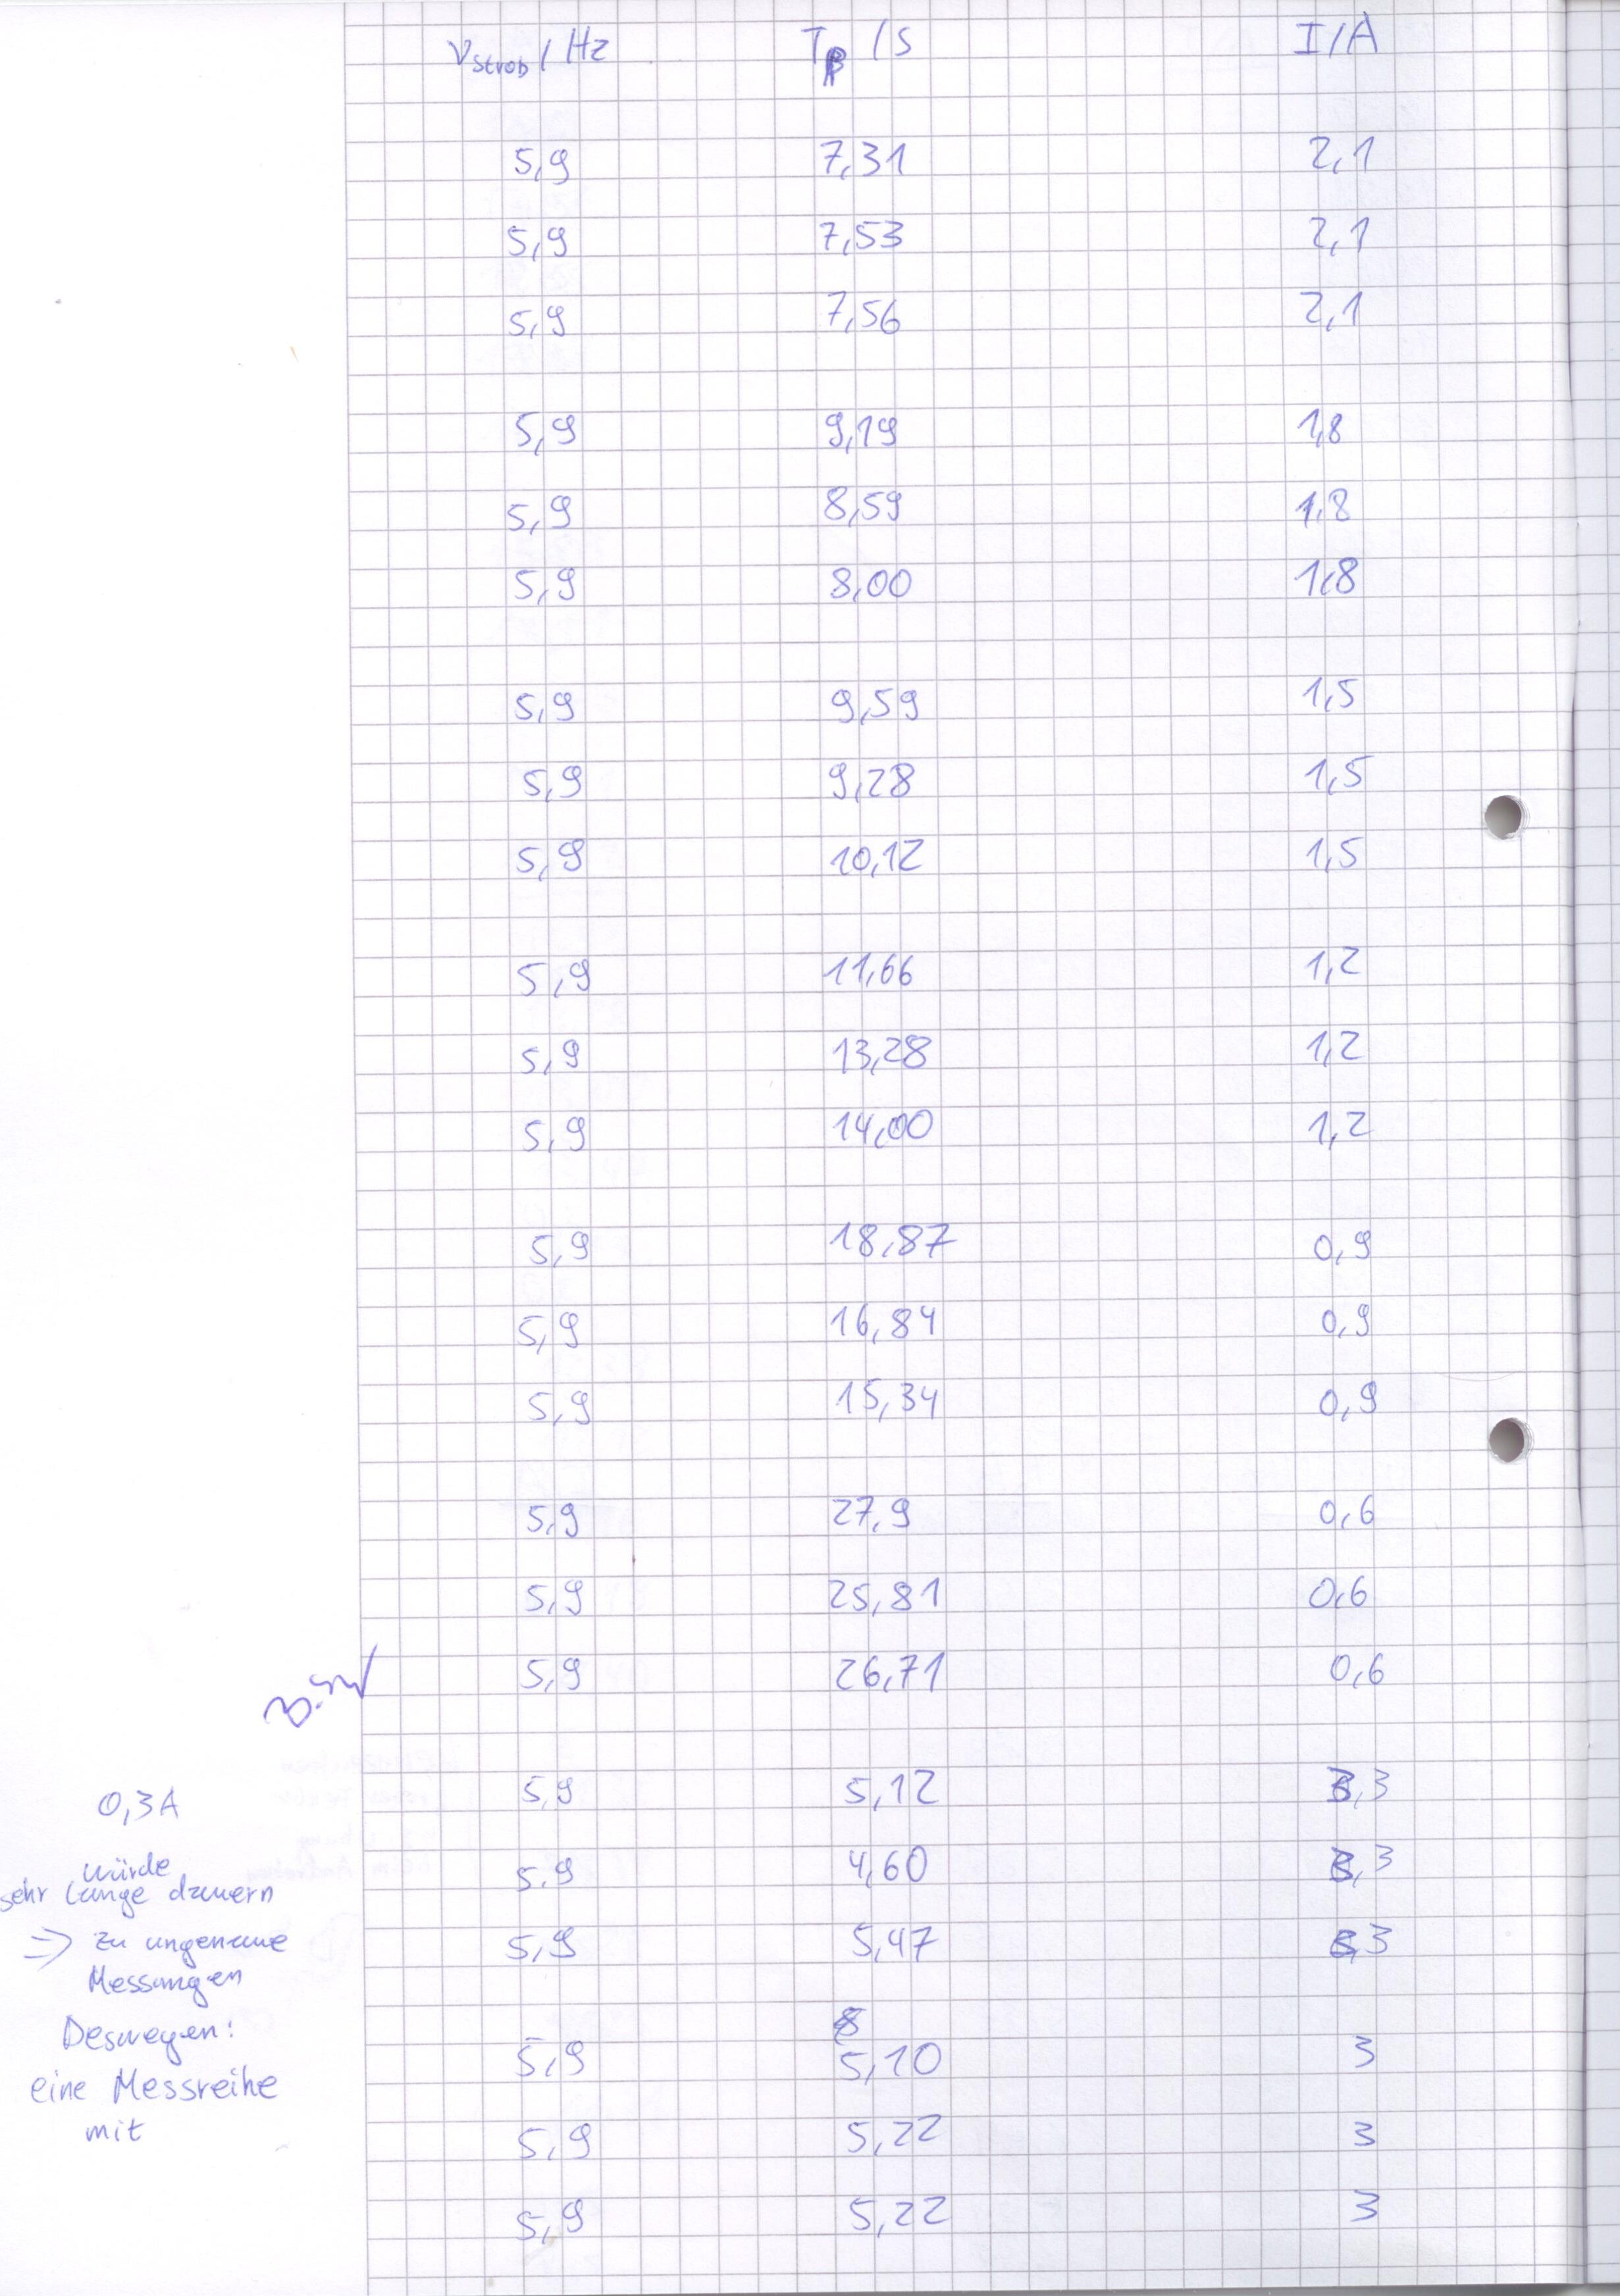 νStrob / Hz TP / s I/A
5,9 7,31 2,1
5,9 7,53 2,1
5,9 7,56 2,1
5,9 9,19 1,8
5,9 8,59 1,8
5,9 8,00 1,8
5,9 9,59 1,5
5,9 9,28 1,5
5,9 10,12 1,5
5,9 11,66 1,2
5,9 13,28 1,2
5,9 14,00 1,2
5,9 18,87 0,9
5,9 16,84 0,9
5,9 15,34 0,9
5,9 27,9 0,6
5,9 25,81 0,6
5,9 26,71 0,6
5,9 5,12 3,3
5,9 4,60 3,3
5,9 5,47 3,3
5,9 5,10 3
5,9 5,22 3
5,9 5,22 3
0,3A
würde
sehr lange dauern
=> zu ungenaue
Messungen
Deswegen:
eine Messreihe
mit